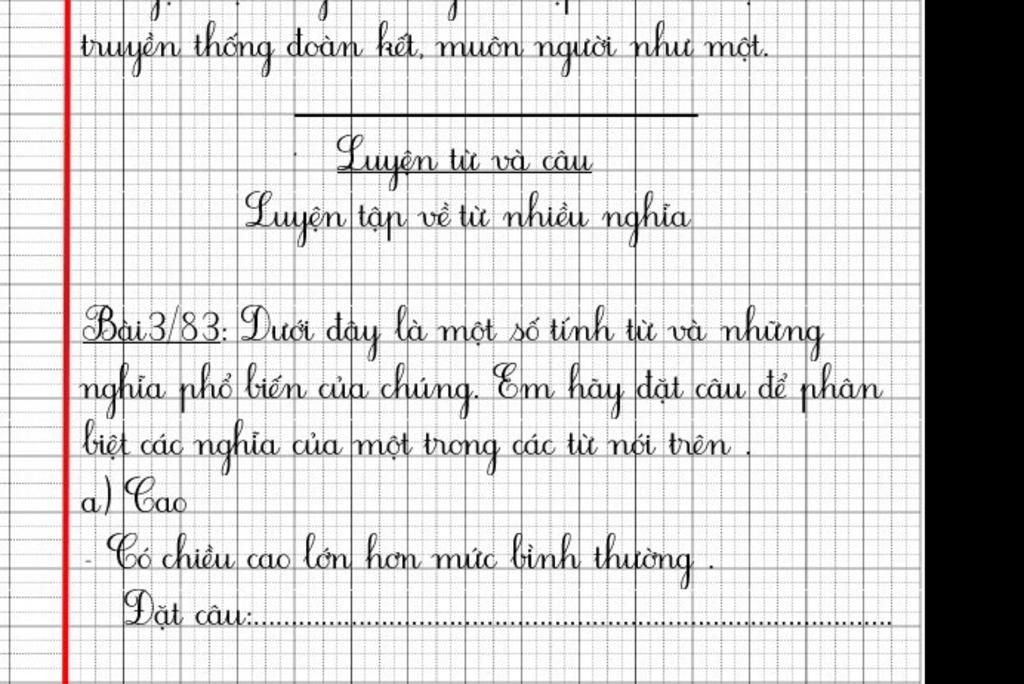 truyền thống đoàn kết, muôn người như một.
Luyện từ và câu
Luyện tập về từ nhiều nghĩa
Bài 3/83: Dưới đây là một số tính từ và những
nghĩa phổ biến của chúng. Em hãy đặt câu để phân
biệt các nghĩa của một trong các từ nói trên .
a) Cao
- Có chiều cao lớn hơn mức bình thường .
Đặt câu:..........................................................................................